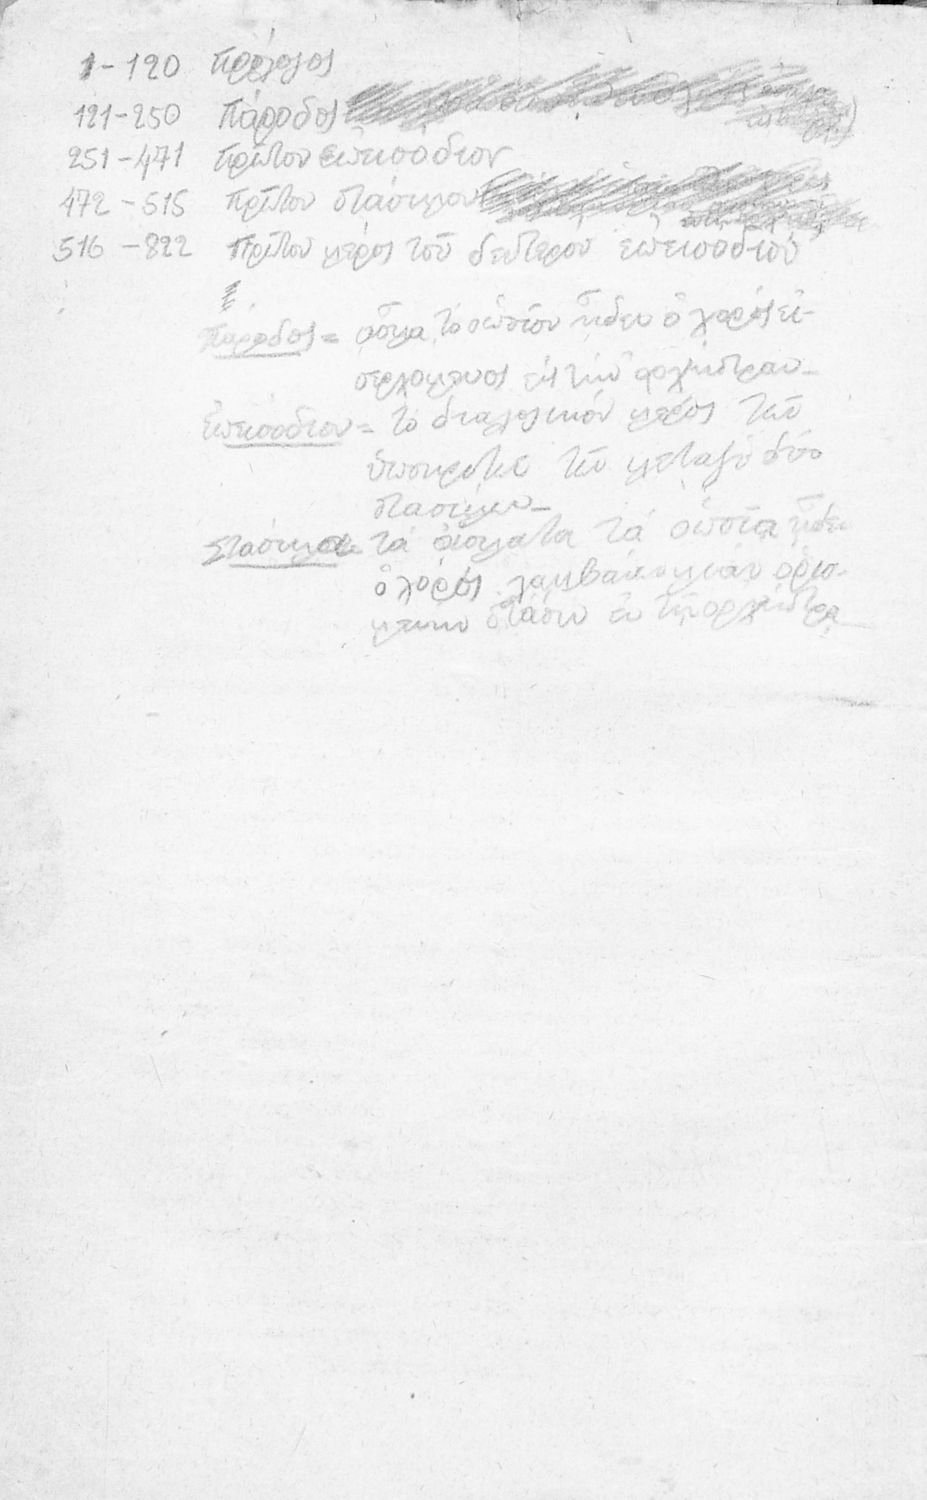 1-120 πρόλογος
121-250 Πάροδος
251-471 πρῶτον ἐπεισόδιον
472-515 πρῶτον στάσιμον
516-822 πρῶτον μέρος τοῦ δευτέρου ἐπεισοδίου
Πάροδος = ᾆσμα τὸ ὁποῖον ᾖδεν ὁ χορὸς εἰ-
σερχόμενος εἰς τὴν ὀρχήστραν_
ἐπεισόδιον = τὸ διαλογικόν μέρος τῶν
ὑποκριτῶν τῶν μεταξὺ δύο
στασίμων_
Στάσιμα τὰ ᾄσματα τὰ ὁποῖα ᾖδεν
ὁ χορὸς λαμβάνων μίαν ὁρισ-
μένην στάσιν ἐν τῇ ὀρχήστρᾳ